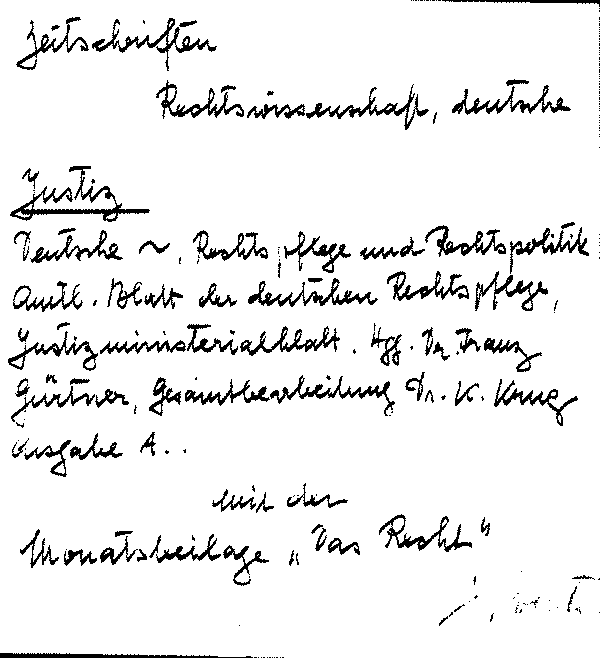 Zeitschriften
Rechtswissenschaft, deutsche
Justiz
Deutsche ~, Rechtspflege und Rechtspolitik
Amtl. Blatt der deutschen Rechtspflege,
Justizministerialblatt. Hgg. Dr. Franz
Gürtner, Gesamtbearbeitung Dr. K. Krug
Ausgabe A..
mit der
Monatsbeilage „Das Recht"